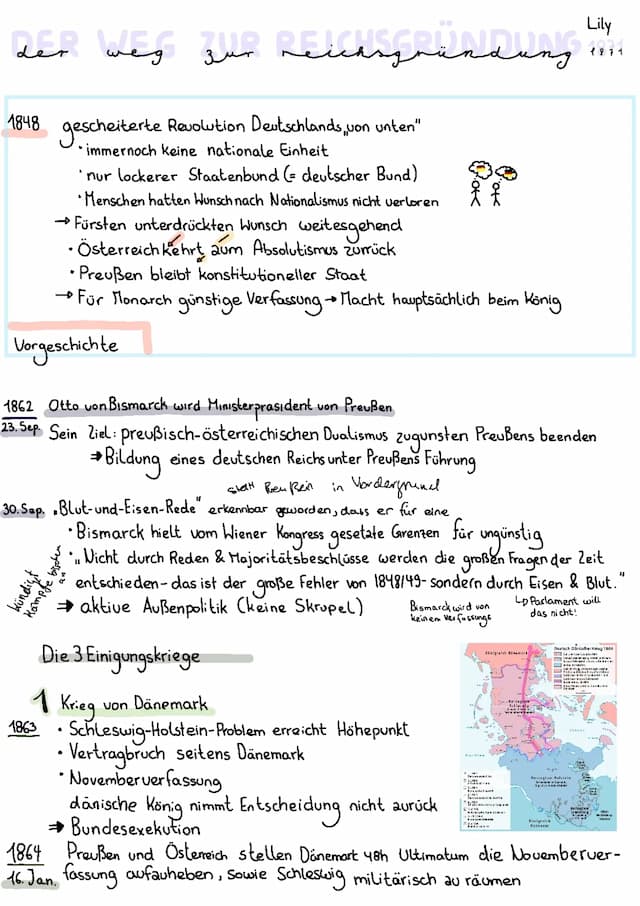 Lily
DER WEG ZUR REICHSGRÜNDUNG 1871
der weg zur reichsgründung 1871
1848 gescheiterte Revolution Deutschlands „von unten"
• immernoch keine nationale Einheit
• nur lockerer Staatenbund (= deutscher Bund)
• Menschen hatten Wunsch nach Nationalismus nicht verloren
→ Fürsten unterdrückten Wunsch weitesgehend
• Österreich kehrt zum Absolutismus zurück
• Preußen bleibt konstitutioneller Staat
→ Für Monarch günstige Verfassung → Macht hauptsächlich beim König
Vorgeschichte
1862 Otto von Bismarck wird Ministerpräsident von Preußen
23. Sep. Sein Ziel: preußisch-österreichischen Dualismus zugunsten Preußens beenden
→ Bildung eines deutschen Reichs unter Preußens Führung
stellt Preußen in Vordergrund
30. Sep. „Blut-und-Eisen-Rede" erkennbar geworden, dass er für eine
• Bismarck hielt vom Wiener Kongress gesetzte Grenzen für ungünstig
• „Nicht durch Reden & Majoritätsbeschlüsse werden die großen Fragen der Zeit
entschieden - das ist der große Fehler von 1848/49 - sondern durch Eisen & Blut."
kündigt Kämpfe an
→ aktive Außenpolitik (keine Skrupel)
Bismarck wird von
keinem Verfassungs
↳ Parlament will
das nicht!
Die 3 Einigungskriege
1 Krieg von Dänemark
1863 • Schleswig-Holstein-Problem erreicht Höhepunkt
• Vertragbruch seitens Dänemark
• Novemberverfassung
dänische König nimmt Entscheidung nicht zurück
→ Bundesexekution
1864 Preußen und Österreich stellen Dänemark 48h Ultimatum die Novemberver-
16. Jan. fassung aufzuheben, sowie Schleswig militärisch zu räumen